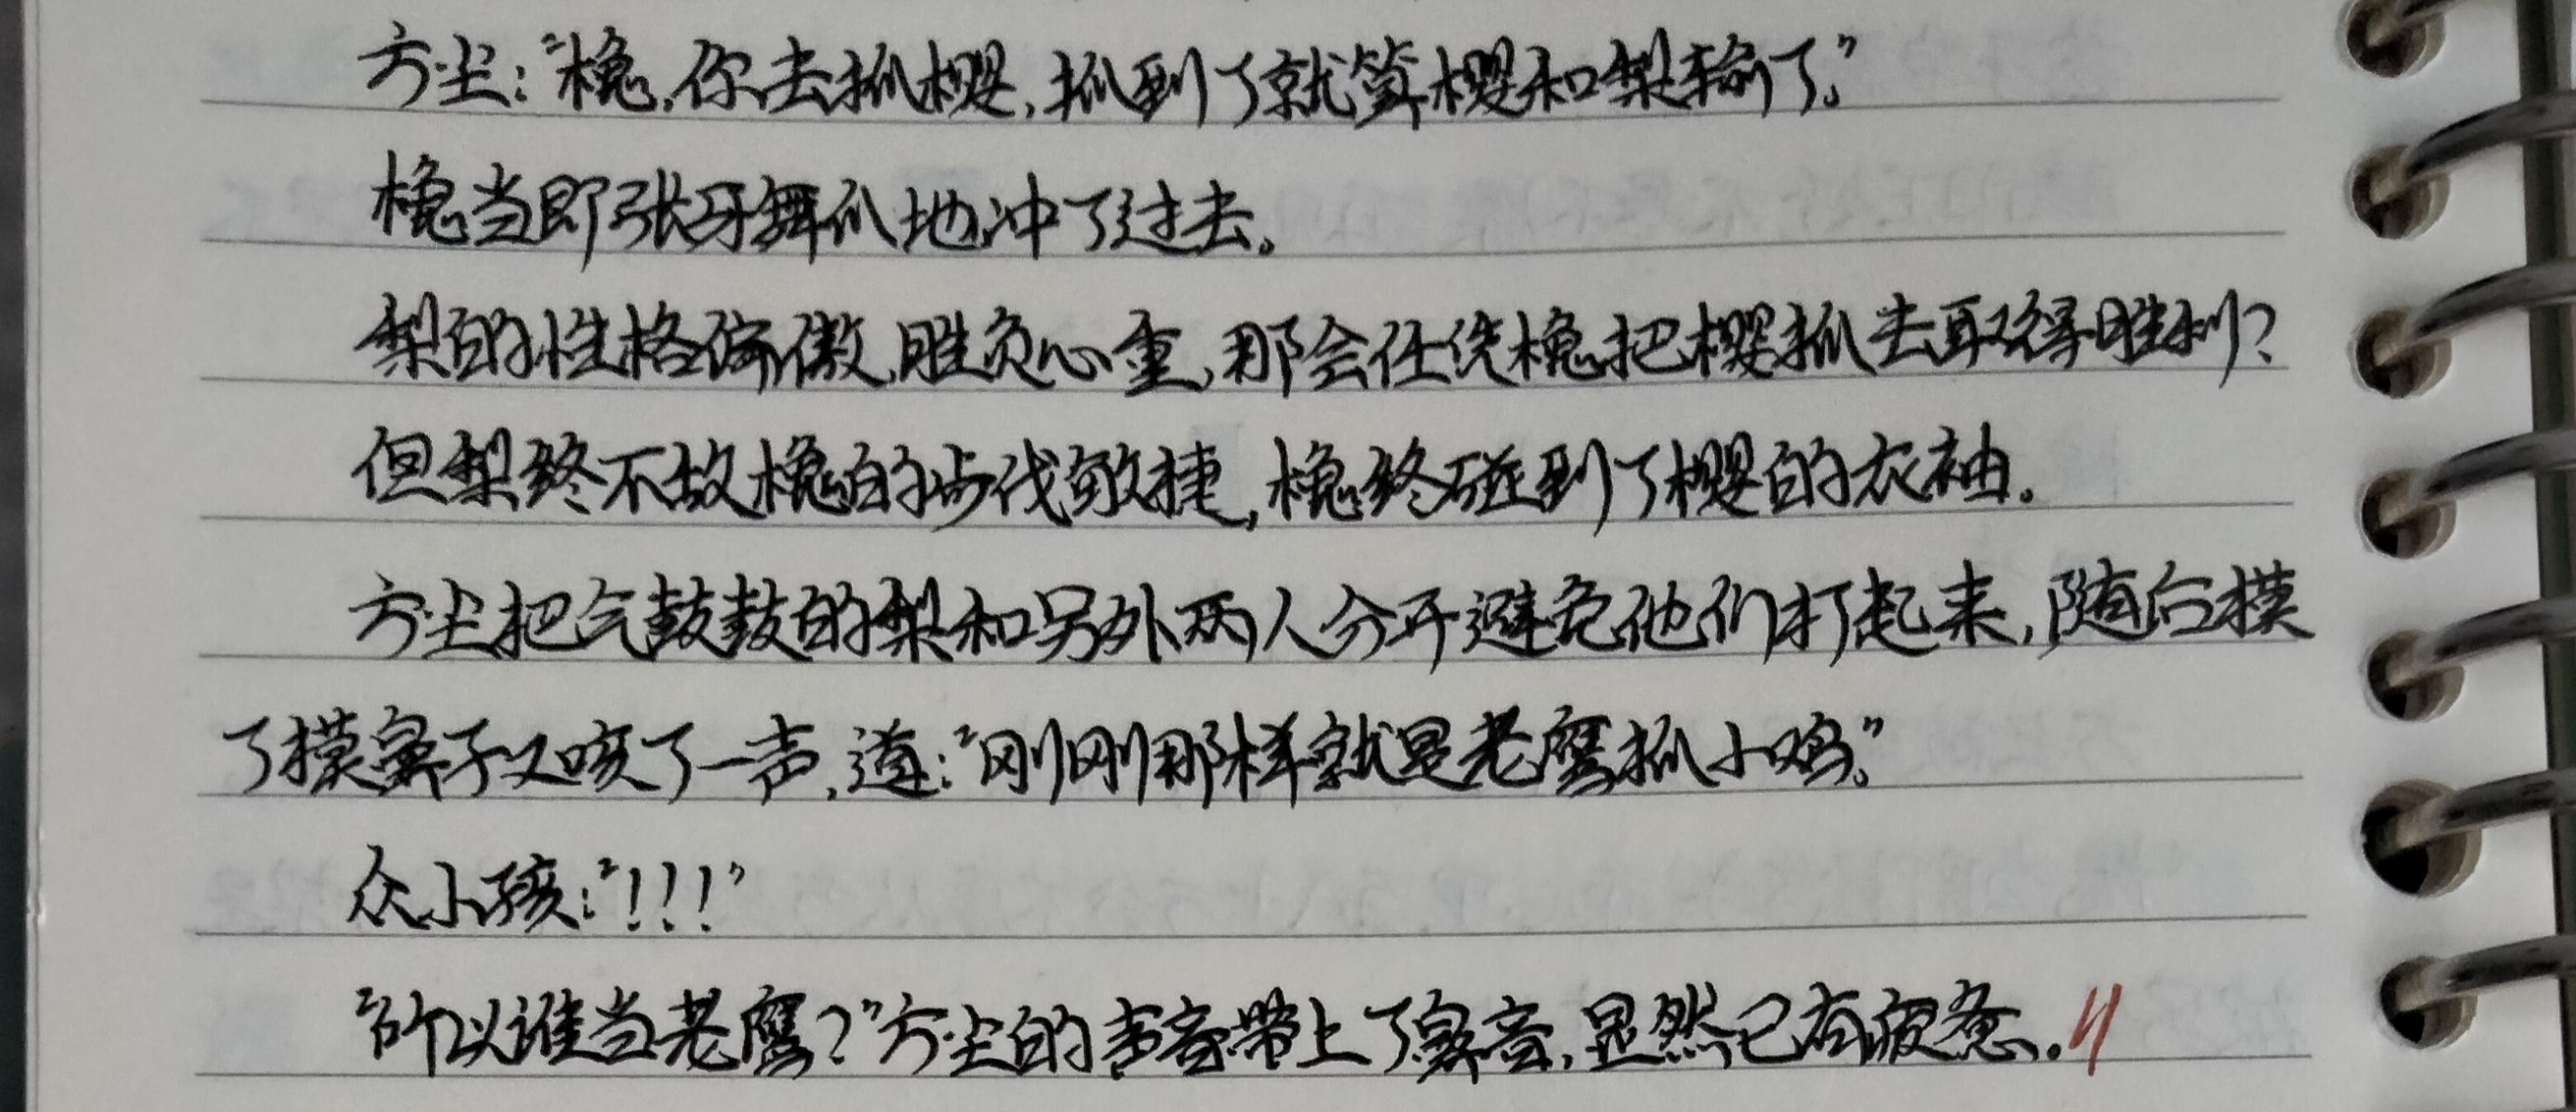 方尘：“槐，你去抓樱，抓到了就算樱和梨输了。”
槐当即张牙舞爪地冲了过去。
梨的性格偏傲，胜负心重，那会任凭槐把樱抓去取得胜利？
但梨终不敌槐的步伐敏捷，槐终碰到了樱的衣袖。
方尘把气鼓鼓的梨和另外两人分开避免他们打起来，随后摸
了摸鼻子又咳了一声，道：“刚刚那样就是老鹰抓小鸡。”
众小孩：“！！！”
“所以谁当老鹰？”方尘的声音带上了鼻音，显然已有疲惫。